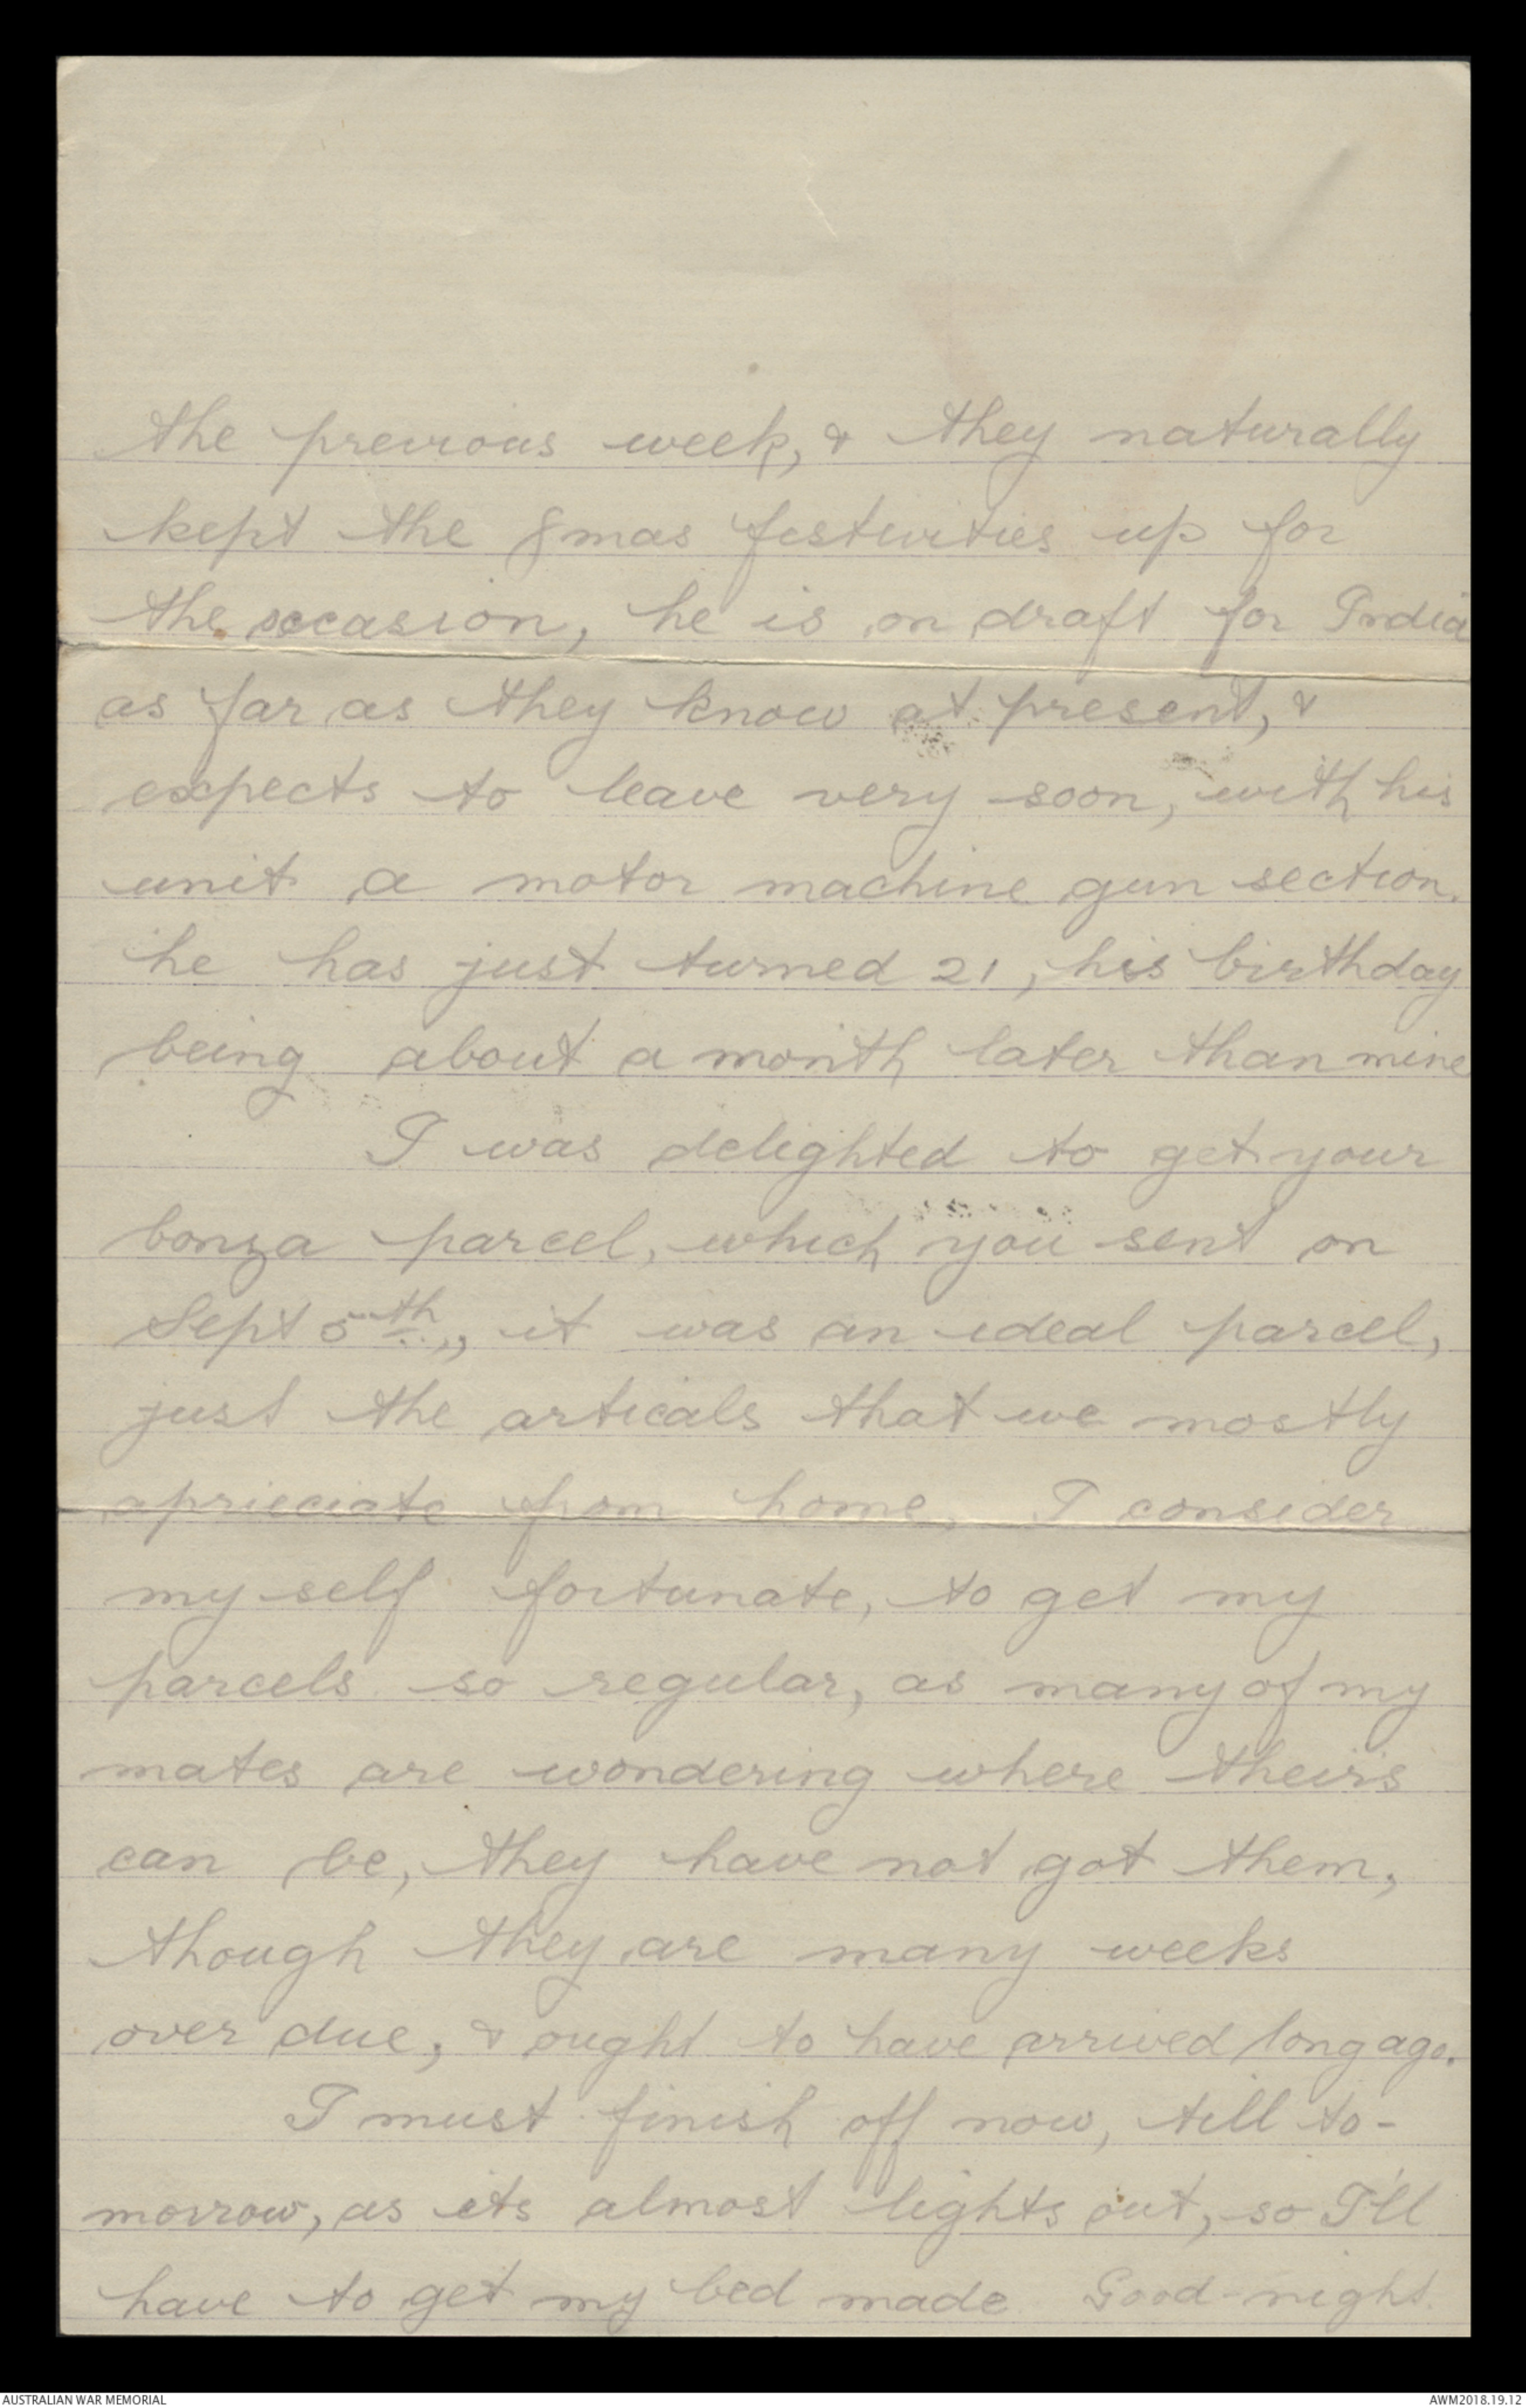 the previous week, & they naturally
kept the Xmas festivities up for
the occasion, he is on draft for India
as far as they know at present, &
expects to leave very soon, with his
unit a motor machine gun section.
he has just turned 21, his birthday
being about a month later than mine
I was delighted to get your
bonza parcel, which you sent on
Sept 5th, it was an ideal parcel,
just the articals that we mostly
aprieciate from home, I consider
my self fortunate, to get my
parcels so regular, as many of my
mates are wondering where theirs
can be, they have not got them,
though they are many weeks
over due, & ought to have arrived long ago.
I must finish off now, till to-
morrow, as its almost lights out, so I'll
have to get my bed made Good-night.
AUSTRALIAN WAR MEMORIAL
AWM2018.19.12